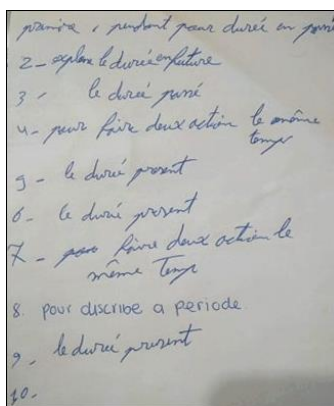 , pendant pour durée en passé
2 - explore le durée en future
3 - le durée passé
4 - pour faire deux action le même
temps
5 - le durée present
6 - le durée present
7 - faire deux action le
même Temps
8. pour discribe a periode.
9. le durée present
10.